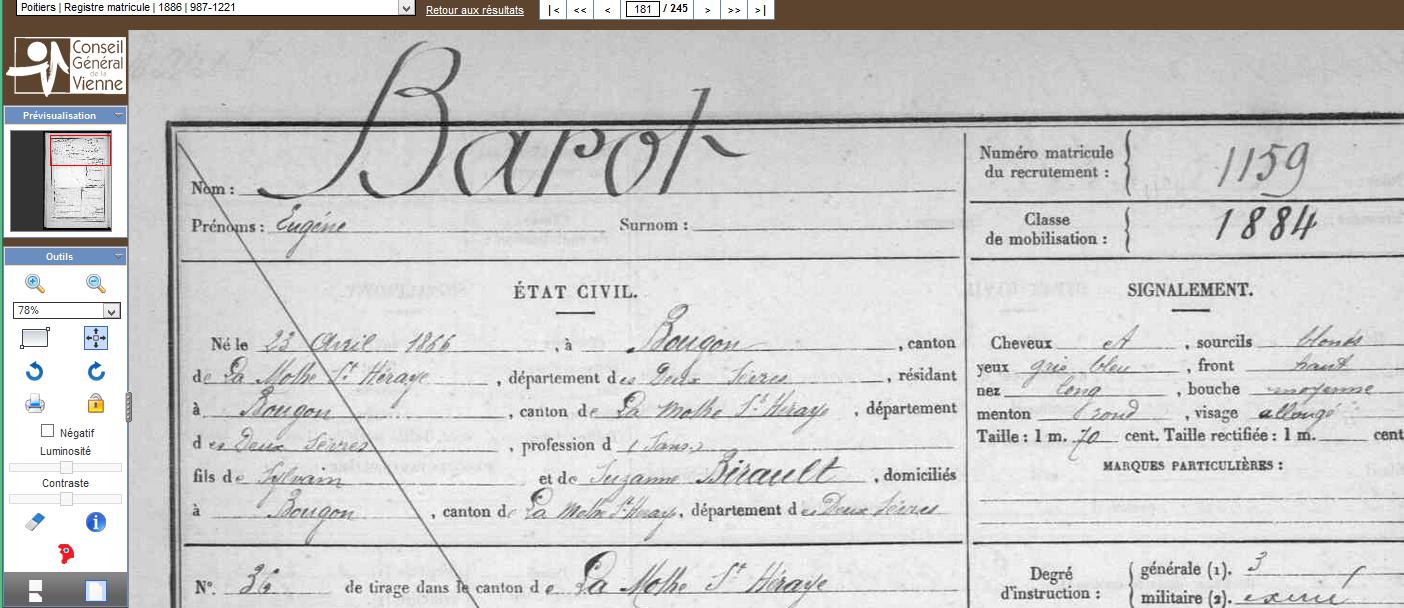 Poitiers | Registre matricule | 1886 | 987-1221
Retour aux résultats
|< << < 181 / 245 > >> >|
Conseil
Général
de la
Vienne
Prévisualisation
Outils
78%
Négatif
Luminosité
Contraste
Nom : Bapot
Prénoms : Eugène Surnom :
Numéro matricule
du recrutement : 1159
Classe
de mobilisation : 1884
ÉTAT CIVIL.
Né le 23 Avril 1866, à Bougon, canton
de La Mothe St Héraye, département des Deux Sèvres, résidant
à Bougon, canton de La Mothe St Héraye, département
des Deux Sèvres, profession d (Sans)
fils de Sylvain et de Suzanne Birault, domiciliés
à Bougon, canton de La Mothe St Heraye, département des Deux Sèvres
N°. 36 de tirage dans le canton de La Mothe St Héraye
SIGNALEMENT.
Cheveux et, sourcils blonds
yeux gris bleu, front haut
nez long, bouche moyenne
menton rond, visage allongé
Taille : 1 m. 70 cent. Taille rectifiée : 1 m. cent
MARQUES PARTICULIÈRES :
Degré
d'instruction :
générale (1). 3
militaire (2). exercé